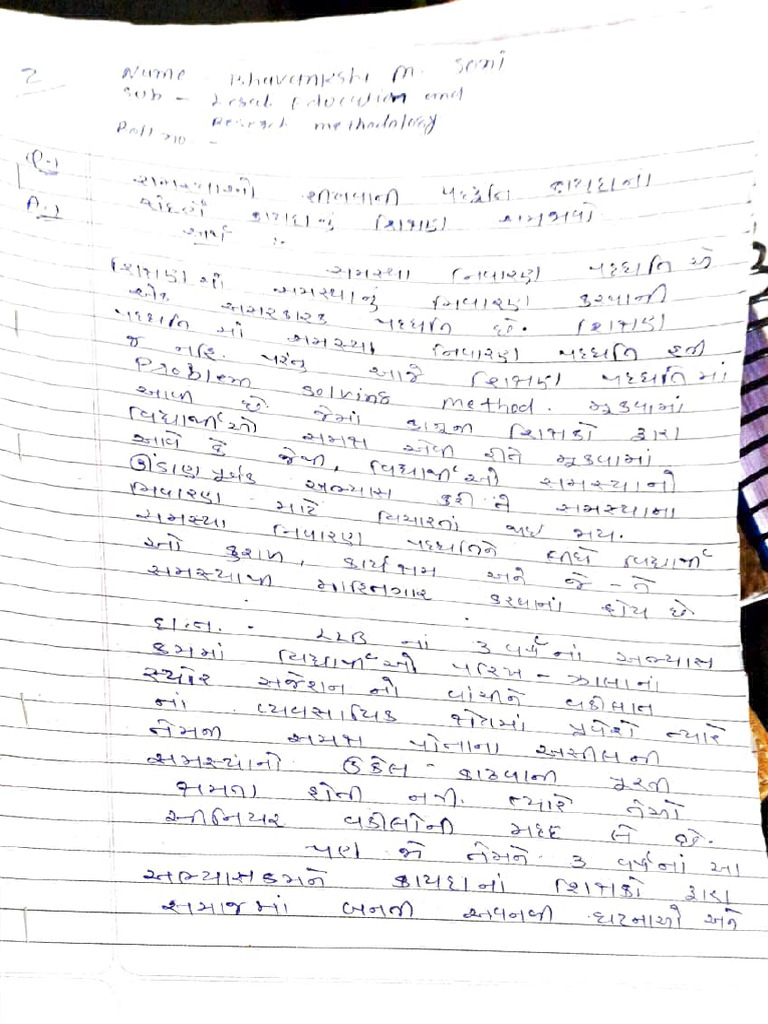 2
Name Bhavankshi M. Soni
Sub - Legal Education and
Research methodology
Roll no. -
Q-1
સમસ્યાઓની પદ્ધતિ કાયદાના
A-1
કાયદાનું શિક્ષણ સમજાવો
અર્થ :-
સમસ્યા નિવારણ પધ્ધતિ એ
શિક્ષણ ની સમસ્યાનું નિવારણ કરવાની
એક અસરકારક પધ્ધતિ છે. શિક્ષણ
પધ્ધતિ માં સમસ્યા નિવારણ પધ્ધતિ હતી
જ નહિ. પરંતુ આજે શિક્ષણ પધ્ધતિમાં
Problem solving method. મૂકવામાં
આવી છે જેમાં કાનૂન શિક્ષકો દ્વારા
વિદ્યાર્થીઓ સમક્ષ એવી રીતે મૂકવામાં
આવે છે જેથી, વિદ્યાર્થીઓ સમસ્યાનો
ઊંડાણ પૂર્વક અભ્યાસ કરી ને સમસ્યાના
નિવારણ માટે વિચારતાં થઇ જાય.
સમસ્યા નિવારણ પધ્ધતિને લીધે વિદ્યાર્થી
ઓ કુશળ, કાર્યક્ષમ અને જે - તે
સમસ્યાથી માહિતગાર કરવાનાં હોય છે.
દા.ત. - LLB નાં 3 વર્ષનાં અભ્યાસ
ક્રમમાં વિદ્યાર્થીઓ પરિખ - ઝાલાનાં
સ્યોર સજેશન નો વાંચીને વકીલાત
નાં વ્યવસાયિક ક્ષેત્રમાં પ્રવેશે ત્યારે
તેમની સમક્ષ પોતાના અસીલની
સમસ્યાનો ઉકેલ કાઢવાની પૂરતી
ક્ષમતા હોતી નથી. ત્યારે તેઓ
સીનિયર વકીલોની મદદ લે છે.
પણ જો તેમને 3 વર્ષનાં આ
અભ્યાસક્રમને કાયદાનાં શિક્ષકો દ્વારા
સમાજમાં બનતી અવનવી ઘટનાઓ અને